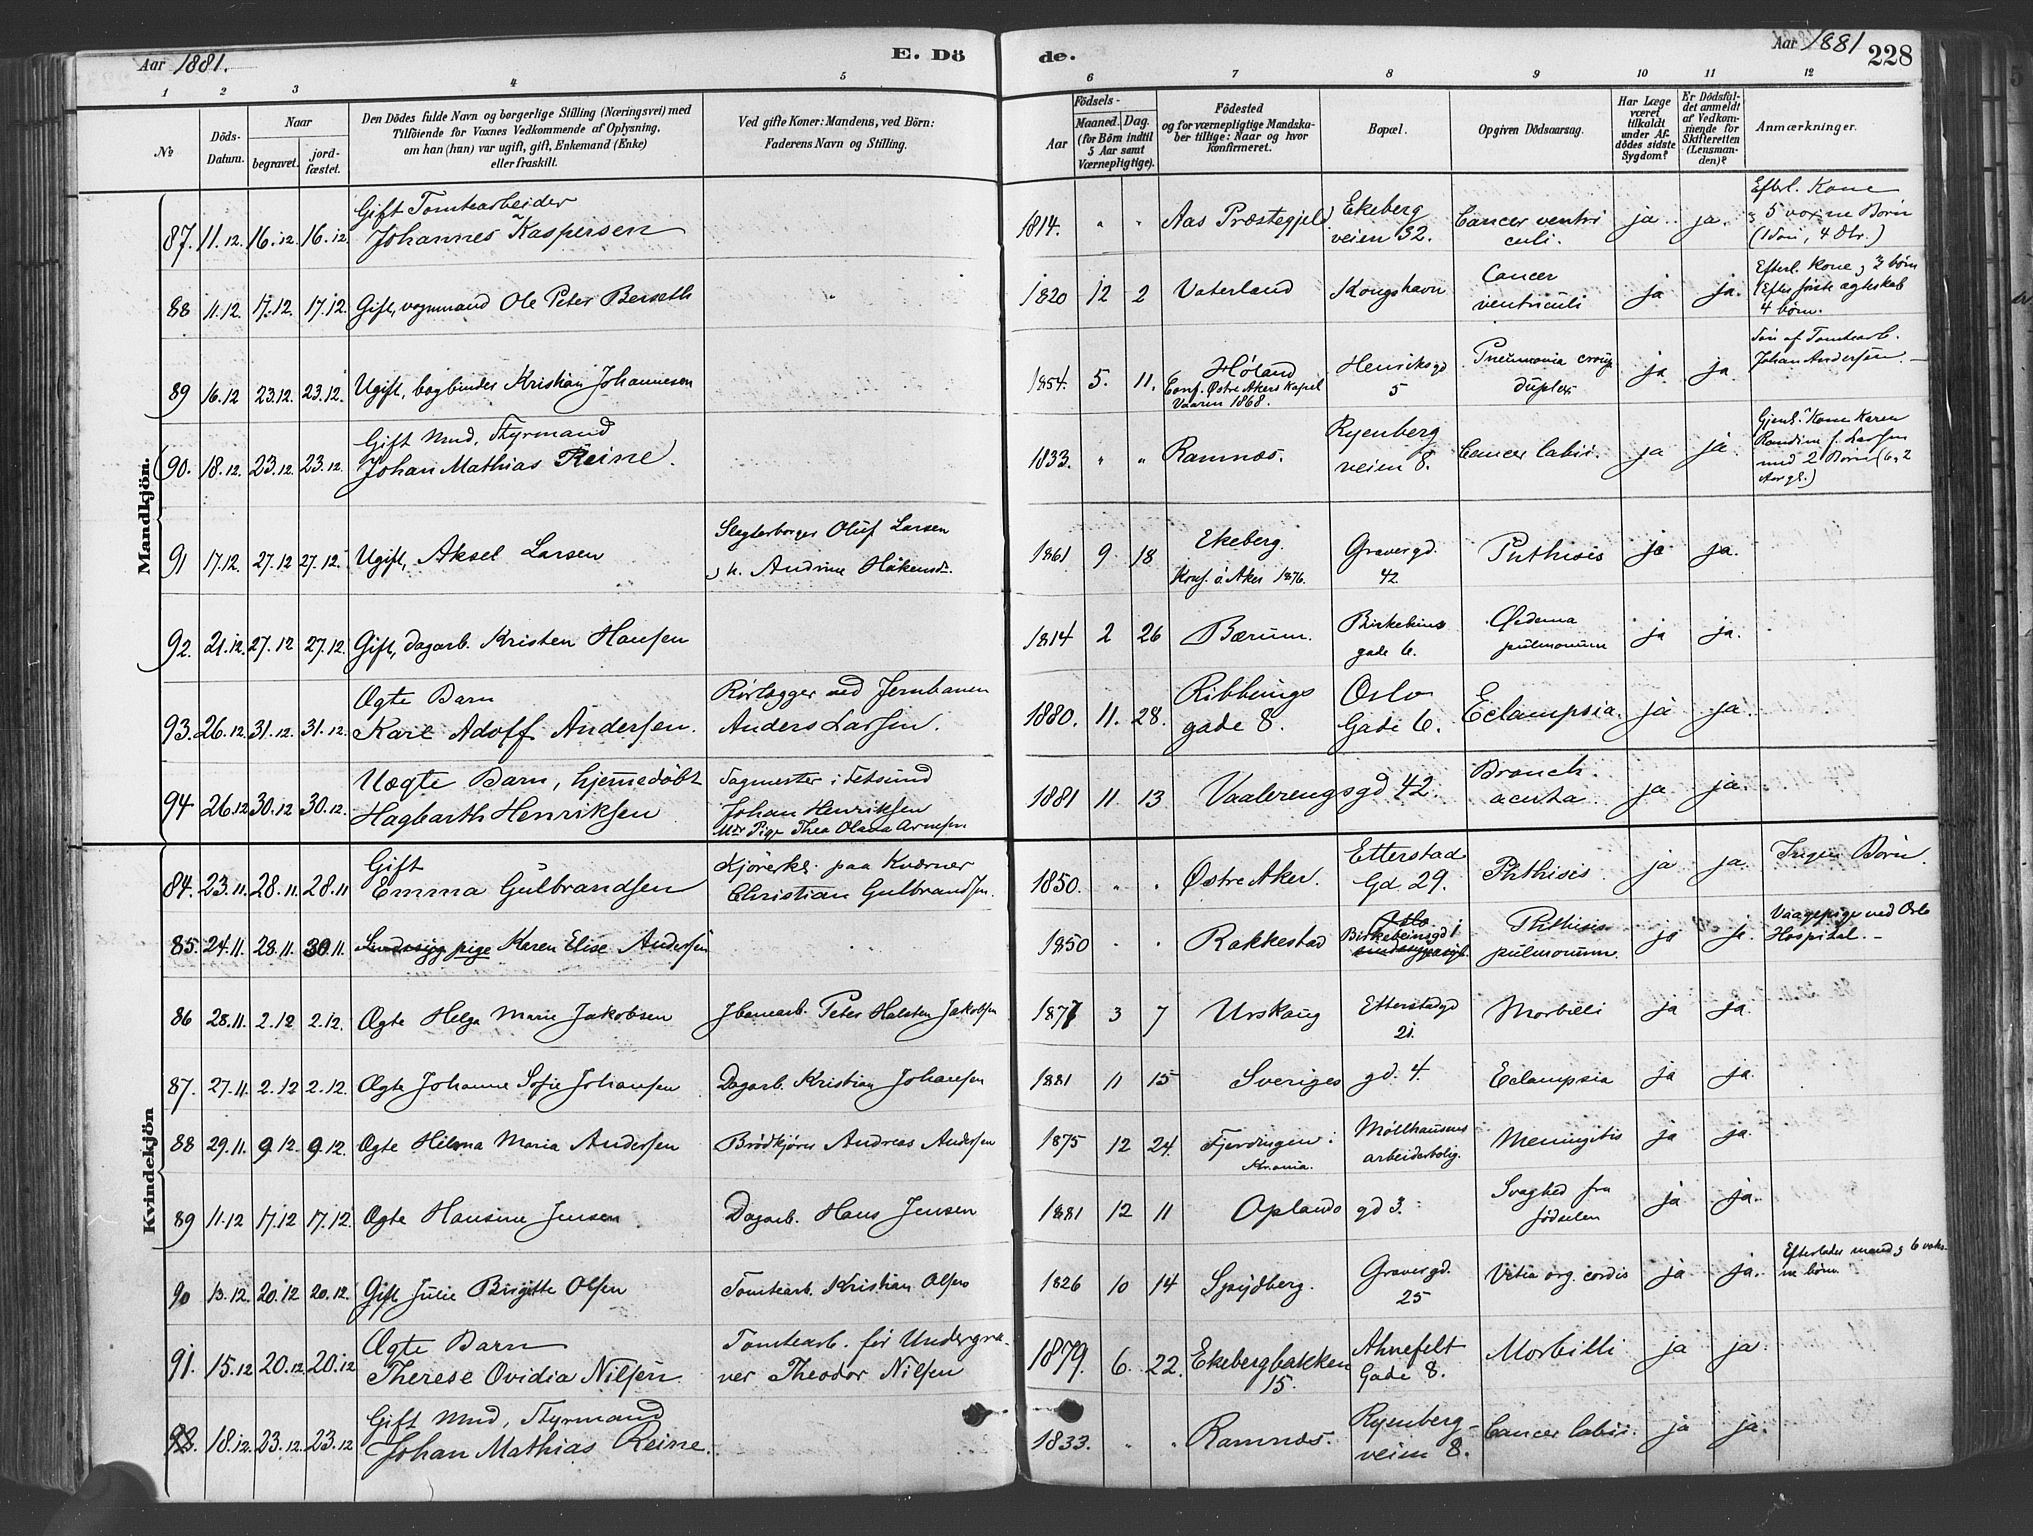 Aar 1881. E. Dö de. Aar 1881 228
1 2 3 4 5 6 7 8 9 10 11 12
No
Döds-Datum.
Naar
begravet.
jordfæstet.
Den Dödes fulde Navn og borgerlige Stilling (Næringsvei) med
Tilföiende for Voxnes Vedkommende af Oplysning,
om han (hun) var ugift, gift, Enkemand (Enke)
eller fraskilt.
Ved gifte Koner: Mandens, ved Börn:
Faderens Navn og Stilling.
Födsels-
Aar
Maaned. Dag.
(for Börn indtil
5 Aar samt
Værnepligtige).
Födested
og for værnepligtige Mandska-
ber tillige: Naar og hvor
konfirmeret.
Bopæl.
Opgiven Dödsaarsag.
Har Læge
været
tilkaldt
under Af-
dödes sidste
Sygdom?
Er Dödsfal-
det anmeldt
af Vedkom-
mende for
Skifteretten
(Lensman-
den)?
Anmærkninger.
Mandkjön.
87. 11.12 16.12 16.12 Gift Tomtearbeider
Johannes Kaspersen
1814. " " Aas Præstegjeld Ekeberg
veien 32. Cancer ventri
culi. ja. ja. Efterl. Kone
& 5 voxne Børn
(1 Søn, 4 Dtr.)
88 11.12 17.12 17.12. Gift, vognmand Ole Peter Berseth "
1820 12 2 Vaterland Kongshavn Cancer
ventriculi ja ja. Efterl. Kone & 3 børn
Efter første ægteskab
4 børn.
89 16.12 23.12. 23.12. Ugift, bogbinder Kristian Johannesen
1854. 5. 11. Høland
Conf. Østre Akers Kapel
Vaaren 1868. Henriksgd
5 Pneumonia croup
duplex ja ja. Søn af Tomtearb.
Johan Andersen.
90. 18.12. 23.12 23.12. Gift Mnd, Styrmand
Johan Mathias Reine.
1833. " " Ramnæs. Ryenberg
veien 8. Cancer labii. ja ja. Gjenl. Kone Karen
Randine f. Larsen
med 2 Børn (6 & 2
Aar gl.)
91 17.12. 27.12 27.12. Ugift, Aksel Larsen Slagterborger Oluf Larsen
& h. Andrine Håkensdr.
1861 9. 18 Ekeberg.
Konf. ø. Aker 1876. Gravergd.
42 Phthisis ja ja.
92. 21.12. 27.12 27.12. Gift, dagarb. Kristen Hansen
1814 2 26 Bærum. Birkebeins
gade 6. Oedema
pulmonum ja ja.
93. 26.12 31.12 31.12. Ægte Barn
Karl Adolf Andersen. Rørlægger ved Jernbanen
Anders Larsen.
1880. 11. 28. Ribbungs
gade 8. Oslo
Gade 6. Eclampsia. ja ja.
94 26.12 30.12 30.12. Uægte Barn, hjemmedöbt
Hagbarth Henriksen Sagmester i Fetsund
Johan Henriksen
Mdr Pige Thea Olava Arnesen
1881 11 13 Vaalerengsgd 42. Bronch.
acuta ja ja.
Kvindekjön
84. 23.11. 28.11. 28.11 Gift
Emma Gulbrandsen Kjörerkl. paa Kværner
Christian Gulbrandsen.
1850. " " Østre Aker. Etterstad
Gd. 29. Phthisis. ja ja. Ingen Børn.
85. 24.11. 28.11 30.11. pige Karen Elise Andersen
1850 Rakkestad Oslo
Birkebeinsgd 1 Phthisis
pulmonum. ja ja. Vaagepige ved Oslo
Hospital.
86 28.11. 2.12 2.12. Ægte Helga Marie Jakobsen Jbanearb. Peter Halsten Jakobsen
1877 3 7 Urskoug Etterstadgd
21. Morbilli ja ja.
87. 27.11. 2.12 2.12. Ægte Johanne Sofie Johansen Dagarb. Kristian Johansen
1881 11 15 Sveriges gd. 4. Eclampsia ja ja.
88 29.11. 9.12. 9.12. Ægte Hilma Maria Andersen Brödkjörer Andreas Andersen
1875 12 24. Fjerdingen i
Krania. Møllhausens
arbeiderbolig. Meningitis ja ja.
89 11.12 17.12 17.12. Ægte Hansine Jensen Dagarb. Hans Jensen
1881 12 11 Oplands gd 3. Svaghed fra
fødselen ja ja.
90 13.12. 20.12 20.12. Gift Julie Birgitte Olsen Tomtearb. Kristian Olsen
1826 10 14 Spydberg. Gravergd.
25 Vitia org. cordis ja ja. Efterlader mand & 6 voks-
ne børn.
91. 15.12 20.12 20.12 Ægte Barn
Therese Ovidia Nilsen. Tomtearb. för Undergra-
ver Theodor Nilsen
1879. 6. 22. Ekebergbakken
15. Ahnefelt
Gade 8. Morbilli ja ja.
18.12. 23.12. 23.12 Gift Mnd, Styrmand
Johan Mathias Reine.
1833. " " Ramnæs. Ryenberg-
veien 8. Cancer labii. ja ja.